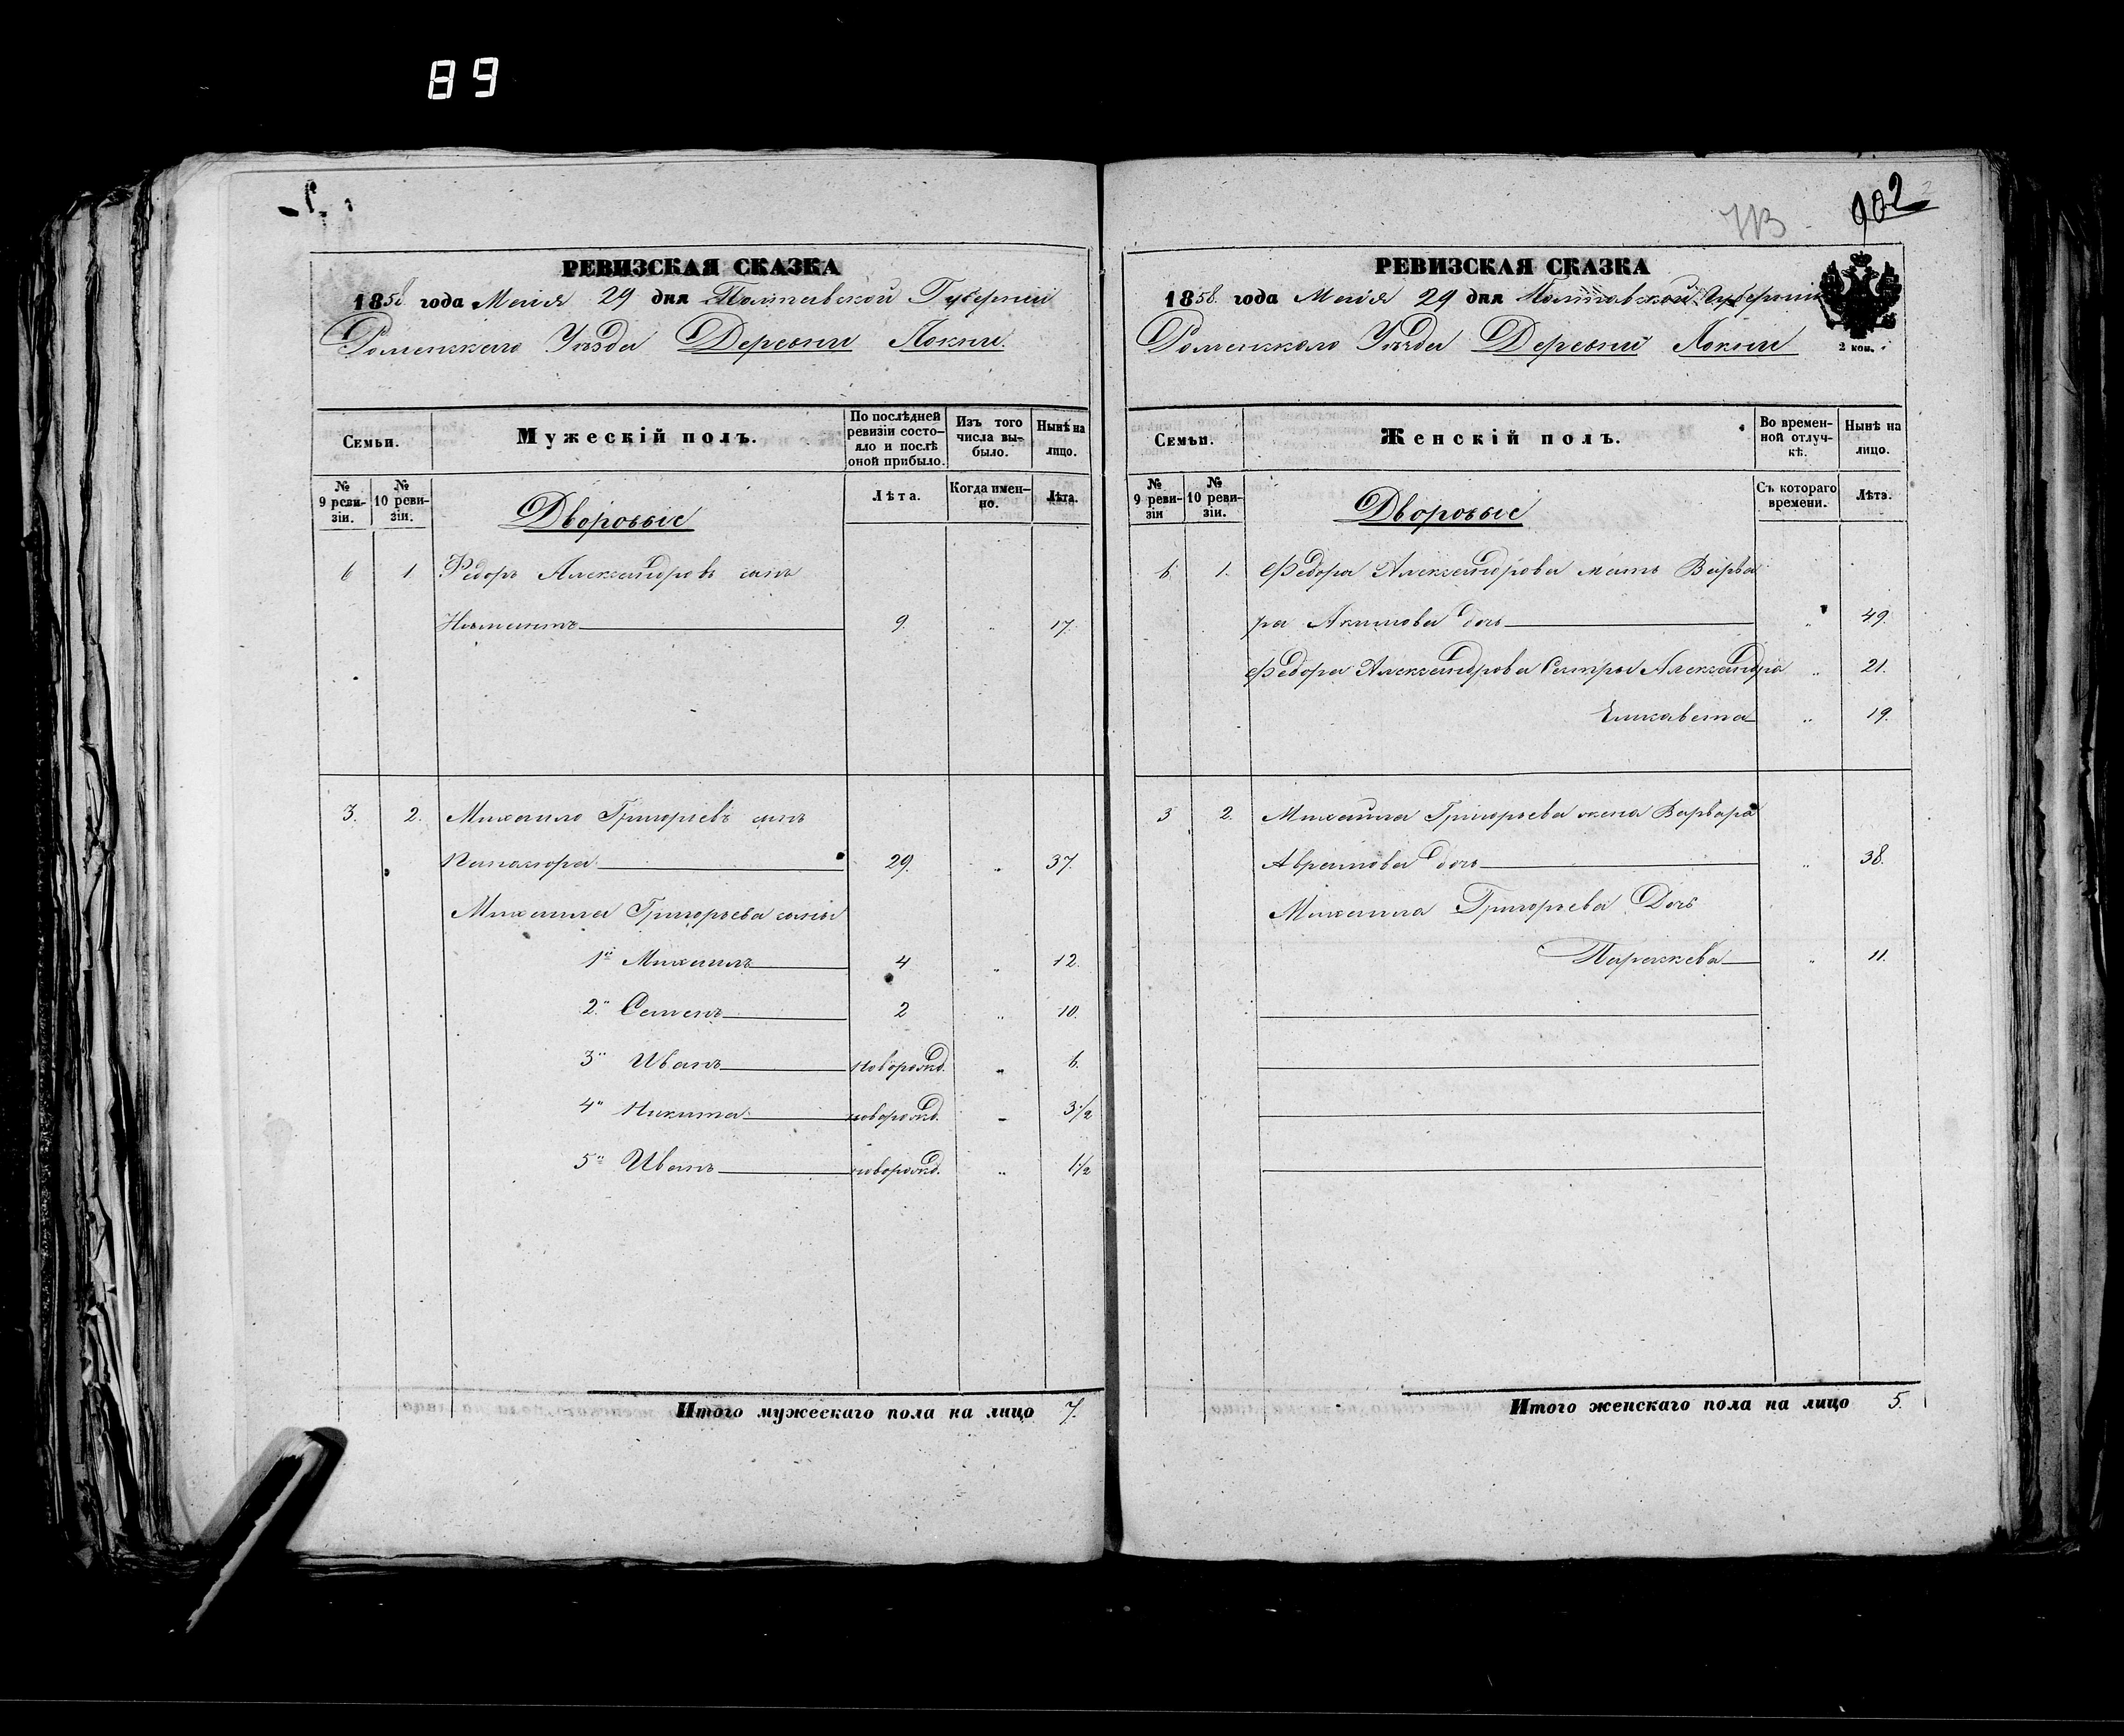 89
902
РЕВИЗСКАЯ СКАЗКА
1858 года Маія 29 дня Полтавской Губерніи
Роменскаго Уѣзда Деревни Локни
Семьи.
Мужескій полъ.
По послѣдней ревизіи состояло и послѣ оной прибыло.
Изъ того числа выбыло.
Нынѣ на лицо.
№ 9 ревизіи.
№ 10 ревизіи.
Дворовые
Лѣта.
Когда именно.
Лѣта.
6 1 Федоръ Александровъ сынъ
9. " 17.
3. 2. Михайло Григорьевъ сынъ
29. " 37.
Михаила Григорьева сыны
1й Михаилъ 4 " 12.
2й Семенъ 2 " 10.
3й Иванъ новорожд. " 6.
4й Никита новорожд. " 3 1/2
5й Иванъ новорожд. " 1 1/2
Итого мужескаго пола на лицо 7.
РЕВИЗСКАЯ СКАЗКА
1858 года Маія 29 дня Полтавской Губерніи
Роменскаго Уѣзда Деревни Локни
2 коп.
Семьи.
Женскій полъ.
Во временной отлучкѣ.
Нынѣ на лицо.
№ 9 ревизіи
№ 10 ревизіи.
Дворовые
Съ котораго времени.
Лѣта.
6. 1. Федора Александрова мать Варва
ра Акимова дочь " 49.
Федора Александрова Сестры Александра " 21.
Елизавета " 19.
3 2. Михаила Григорьева жена Варвара
Аврамова дочь " 38.
Михаила Григорьева Дочь
Параскева " 11.
Итого женскаго пола на лицо 5.